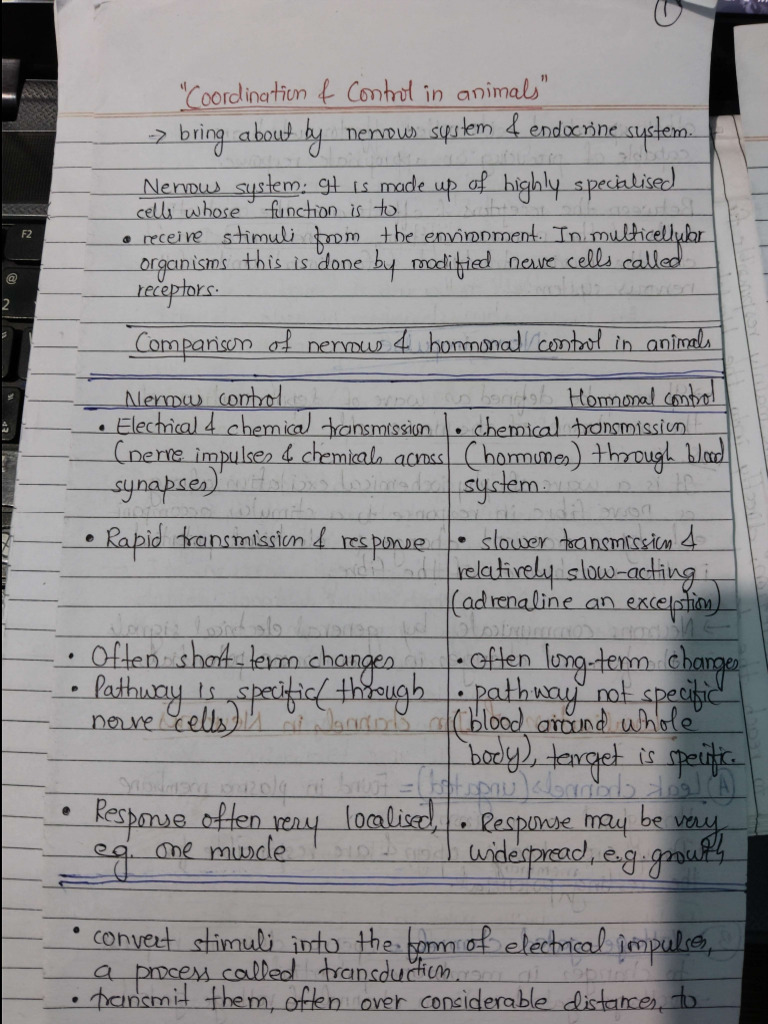 1
"Coordination & Control in animals"
→ bring about by nervous system & endocrine system.
Nervous system: It is made up of highly specialised
cells whose function is to
• receive stimuli from the environment. In multicellular
organisms this is done by modified nerve cells called
receptors.
Comparison of nervous & hormonal control in animals
Nervous control
• Electrical & chemical transmission
(nerve impulses & chemicals across
synapses)
• Rapid transmission & response
• Often short-term changes
• Pathway is specific (through
nerve cells)
• Response often very localised,
e.g. one muscle
Hormonal control
• chemical transmission
(hormones) through blood
system.
• slower transmission &
relatively slow-acting
(adrenaline an exception)
• often long-term changes
• pathway not specific
(blood around whole
body), target is specific.
• Response may be very
widespread, e.g. growth
• convert stimuli into the form of electrical impulses,
a process called transduction.
• transmit them, often over considerable distances, to
F2
@
2